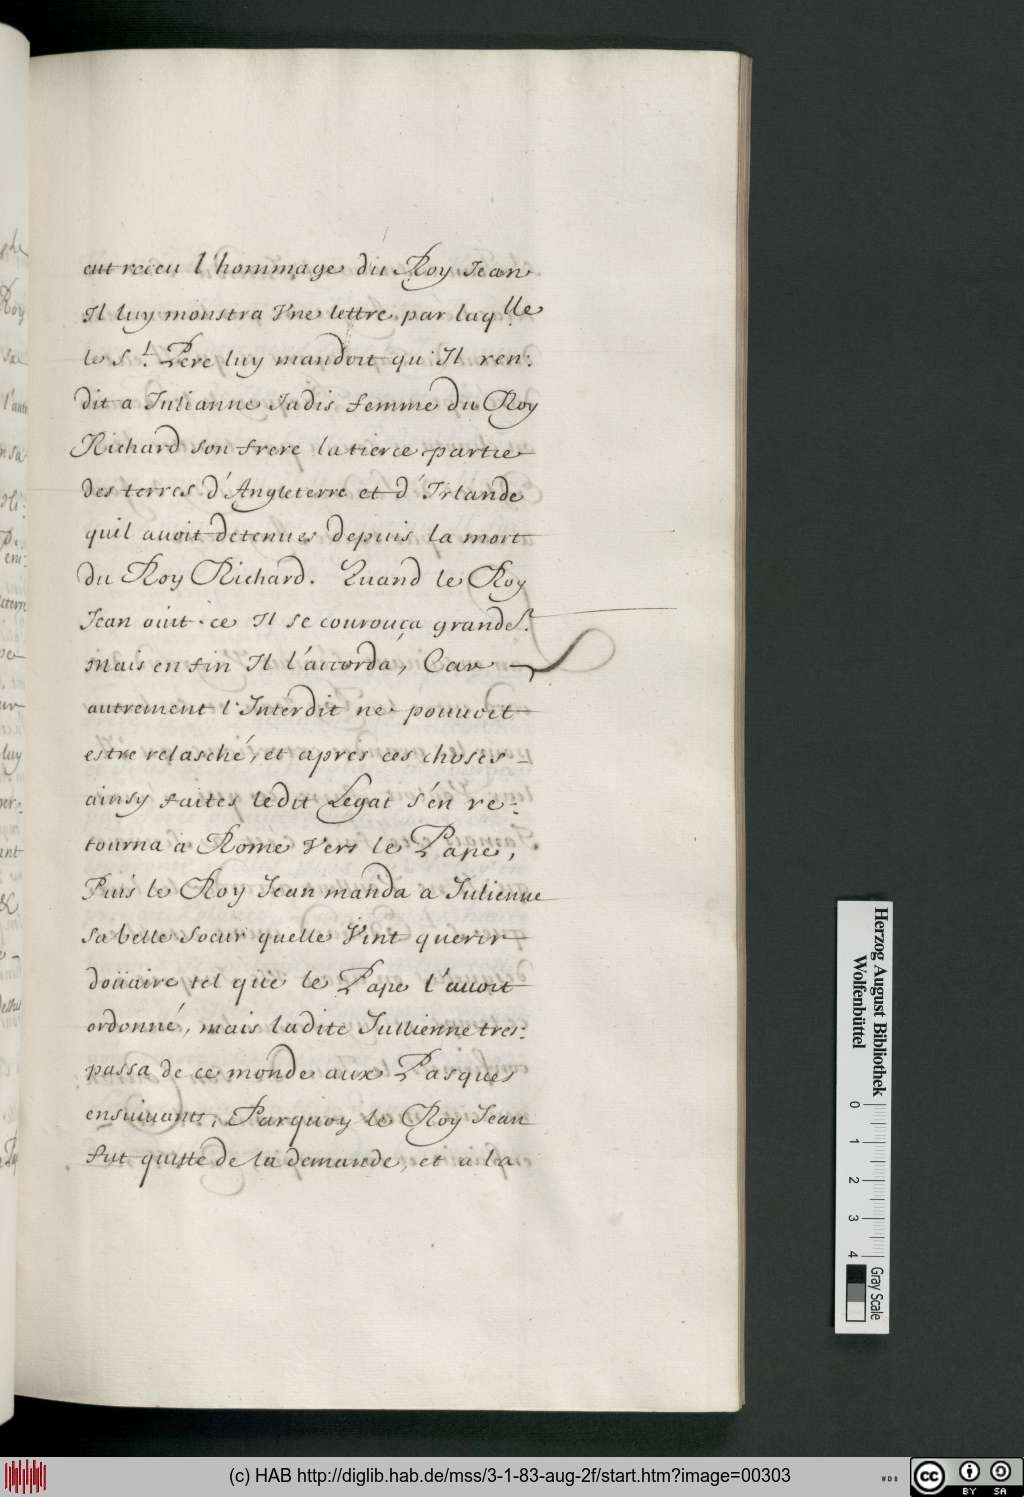 eut receu l'hommage du Roy Jean
Il luy monstra Vne lettre par laqlle
le St. Pere luy mandoit qu'Il ren:
dit a Julianne Jadis femme du Roy
Richard son frere la tierce partie
des terres d'Angleterre et d'Irlande
quil auoit detenues depuis la mort
du Roy Richard. Quand le Roy
Jean ouit ce Il se courouça grandet.
mais en fin Il l'accorda, Car
autrement l'Interdit ne pouuoit
estre relasché, et apres ces choses
ainsy faites ledit Legat s'en re:
tourna a Rome Vers le Pape,
Puis le Roy Jean manda a Julienne
sa belle soeur quelle Vint querir
doüaire tel que le Pape l'auoit
ordonné, mais ladite Jullienne tres:
passa de ce monde aux Pasques
ensuiuants, Parquoy le Roy Jean
fut quitte de la demande, et a la
Herzog August Bibliothek
Wolfenbüttel
0 1 2 3 4
Gray Scale
(c) HAB http://diglib.hab.de/mss/3-1-83-aug-2f/start.htm?image=00303
WDB
cc BY SA